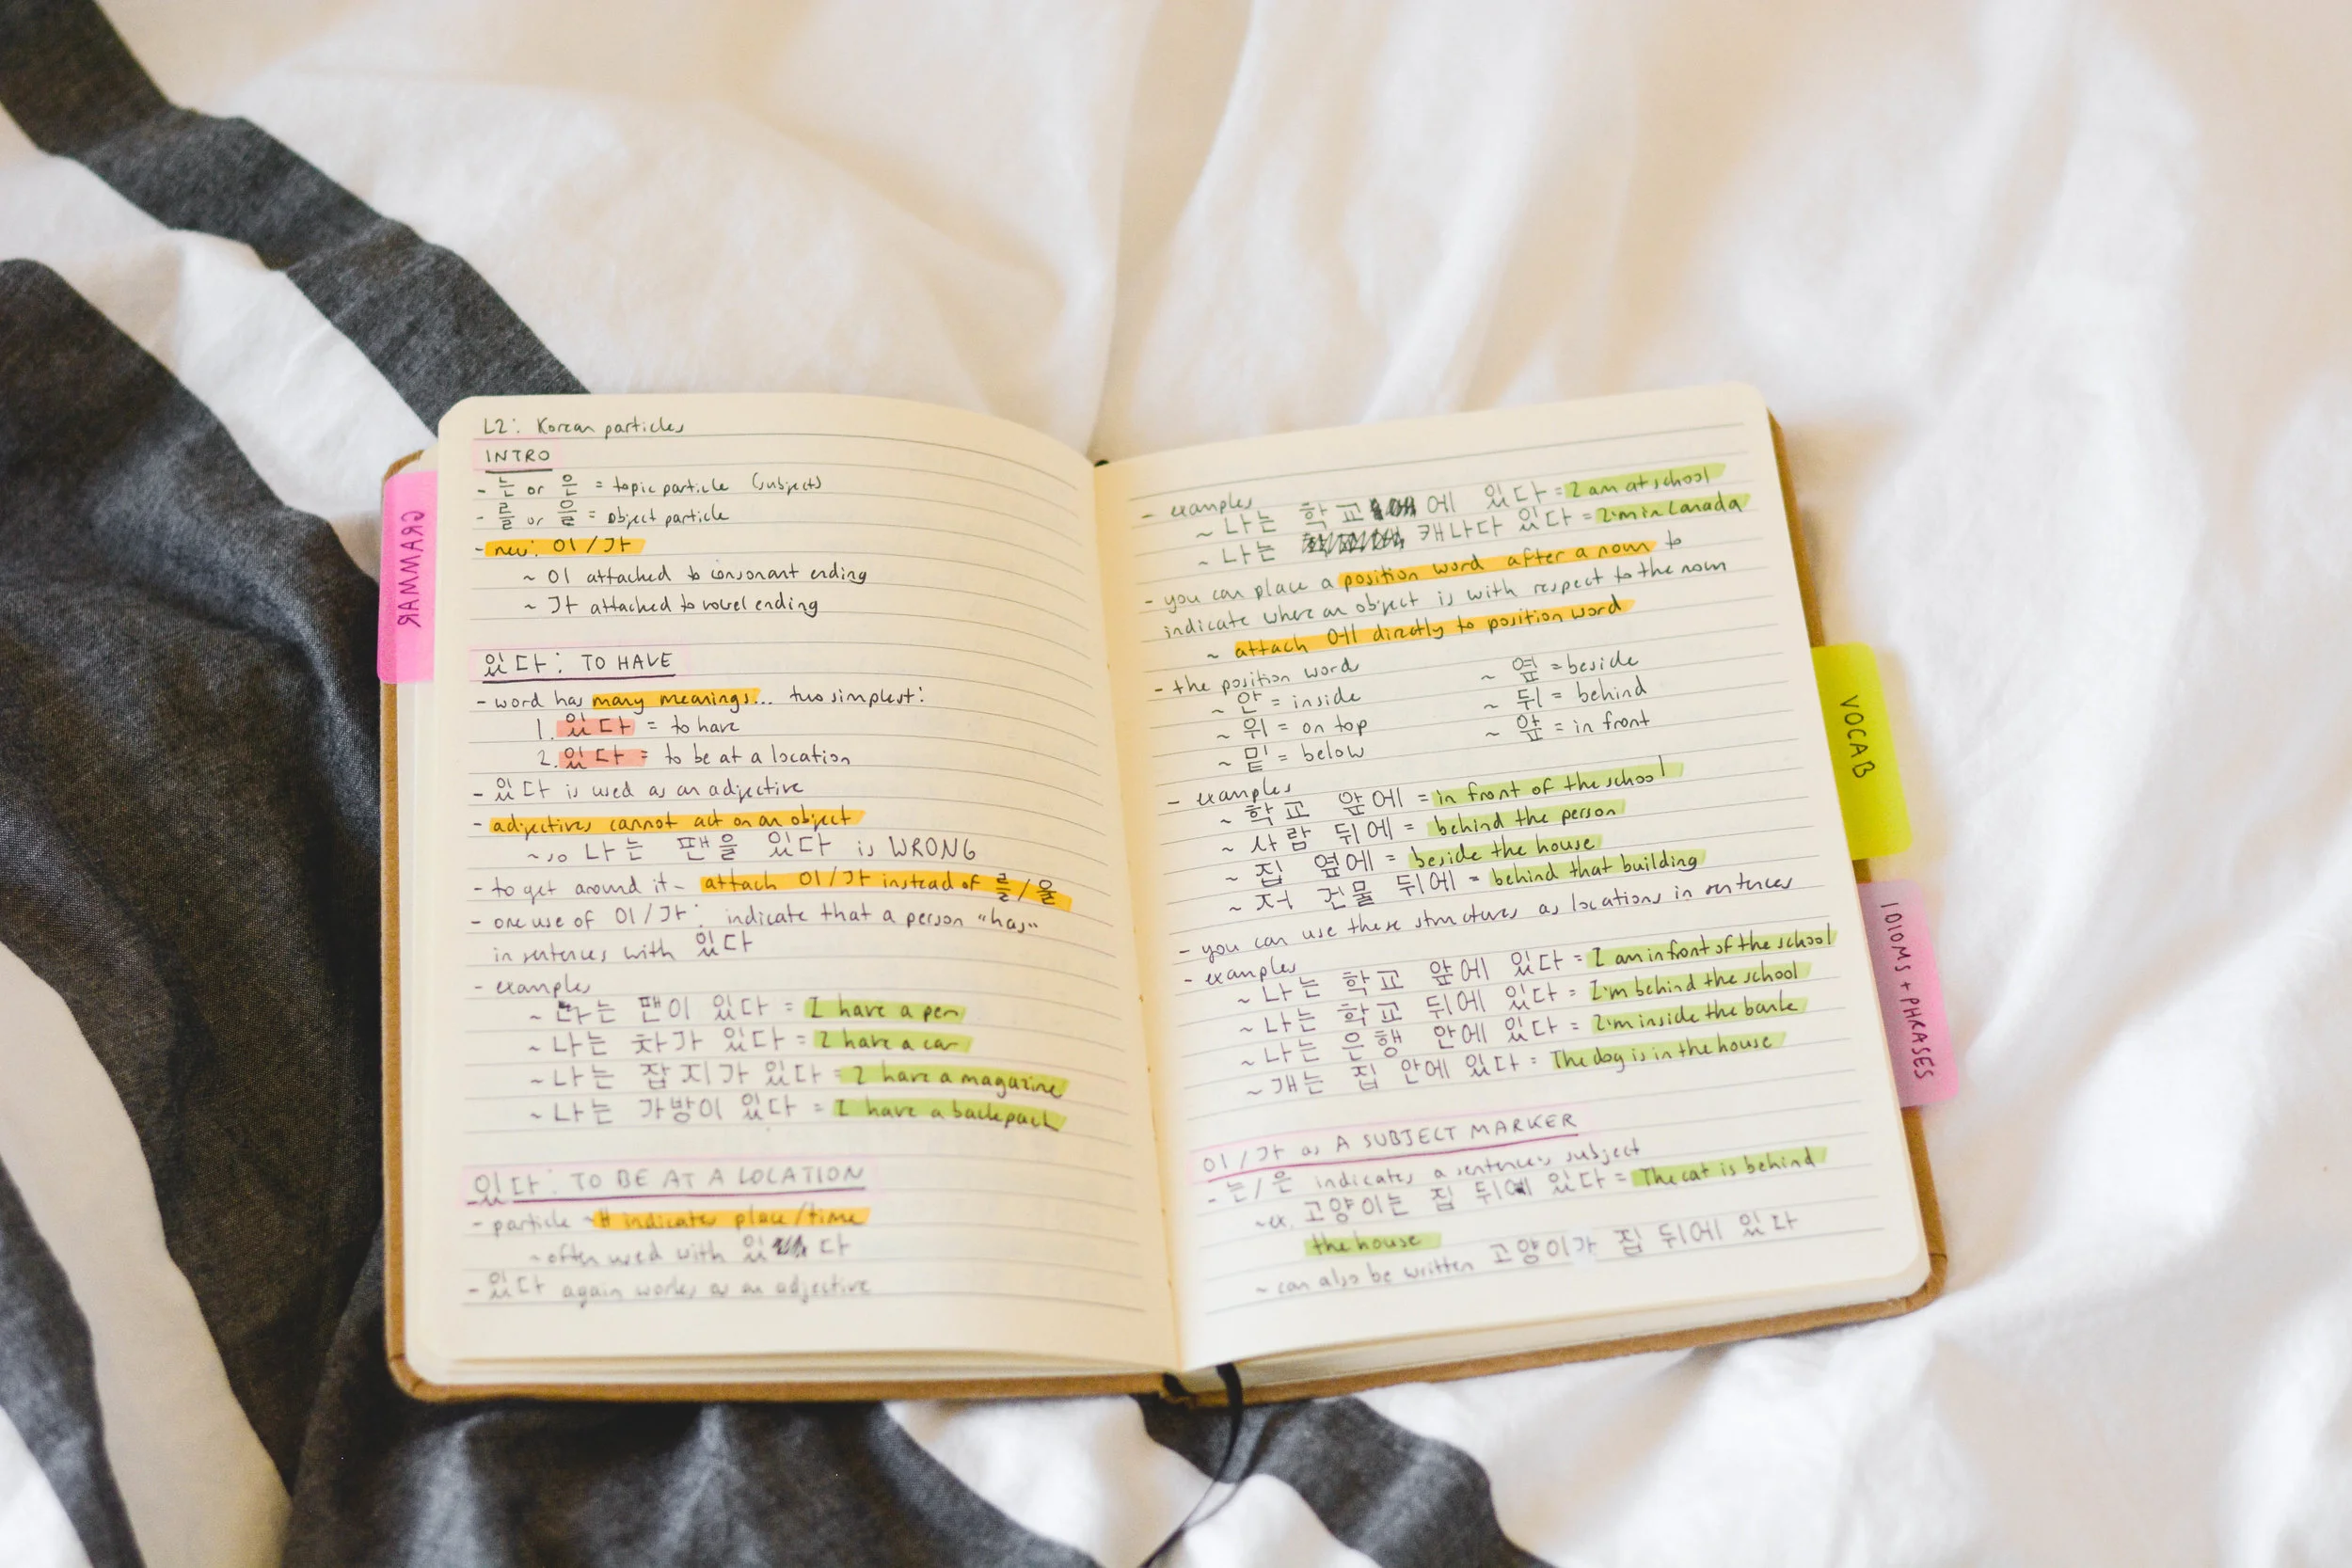 L2: Korean particles
INTRO
- 는 or 은 = topic particle (subjects)
- 를 or 을 = object particle
- new: 이/가
~ 이 attached to consonant ending
~ 가 attached to vowel ending
있다: TO HAVE
- word has many meanings... two simplest:
1. 있다 = to have
2. 있다 = to be at a location
- 있다 is used as an adjective
- adjectives cannot act on an object
~ so 나는 팬을 있다 is WRONG
- to get around it - attach 이/가 instead of 를/을
- one use of 이/가: indicate that a person "has"
in sentences with 있다
- examples
~ 나는 팬이 있다 = I have a pen
~ 나는 차가 있다 = I have a car
~ 나는 잡지가 있다 = I have a magazine
~ 나는 가방이 있다 = I have a backpack
있다: TO BE AT A LOCATION
- particle indicates place/time
~ often used with 있다
- 있다 again works as an adjective
- examples
~ 나는 학교에 있다 = I am at school
~ 나는 캐나다 있다 = I'm in Canada
- you can place a position word after a noun to
indicate where an object is with respect to the noun
~ attach 에 directly to position word
- the position words
~ 안 = inside
~ 위 = on top
~ 밑 = below
~ 옆 = beside
~ 뒤 = behind
~ 앞 = in front
- examples
~ 학교 앞에 = in front of the school
~ 사람 뒤에 = behind the person
~ 집 옆에 = beside the house
~ 저 건물 뒤에 = behind that building
- you can use these structures as locations in sentences
- examples
~ 나는 학교 앞에 있다 = I am in front of the school
~ 나는 학교 뒤에 있다 = I'm behind the school
~ 나는 은행 안에 있다 = I'm inside the bank
~ 개는 집 안에 있다 = The dog is in the house
이/가 as A SUBJECT MARKER
- 는/은 indicates a sentences subject
~ ex. 고양이는 집 뒤에 있다 = The cat is behind
the house
~ can also be written 고양이가 집 뒤에 있다
GRAMMAR
VOCAB
IDIOMS + PHRASES